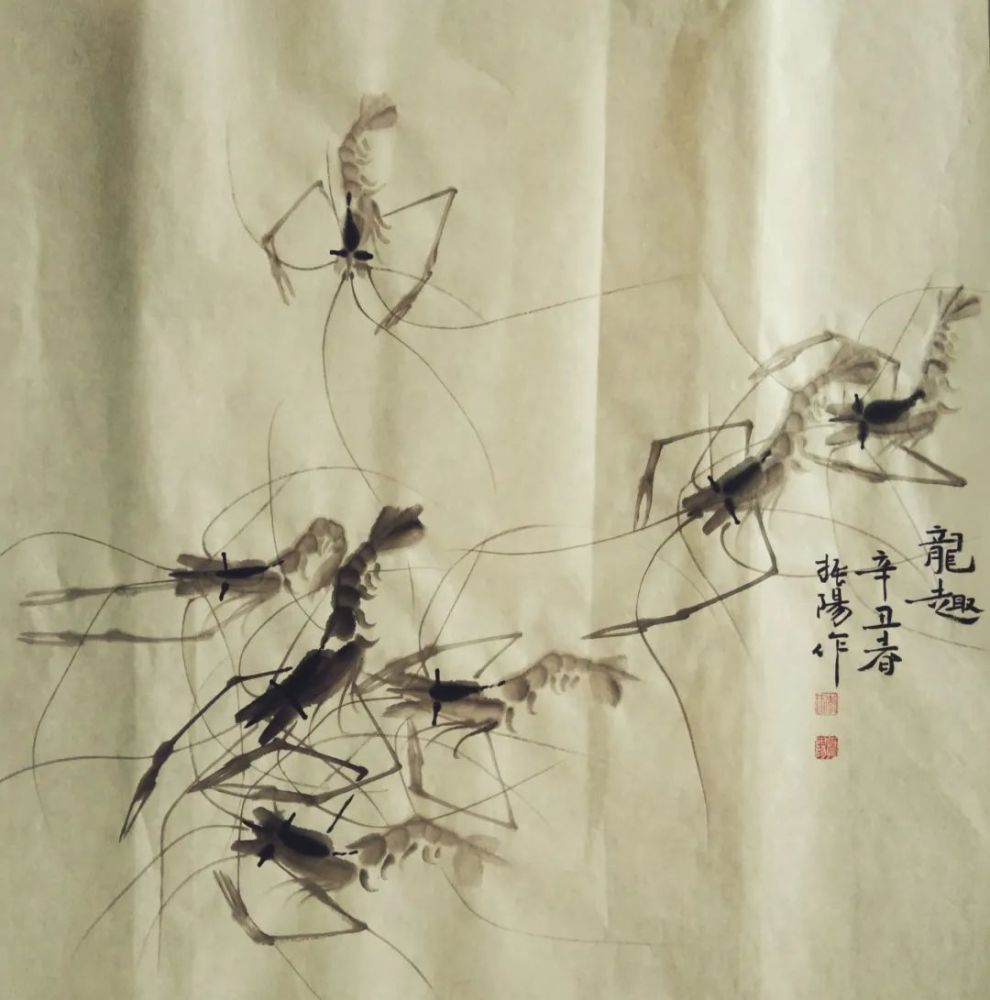 龍趣
辛丑春
振陽作